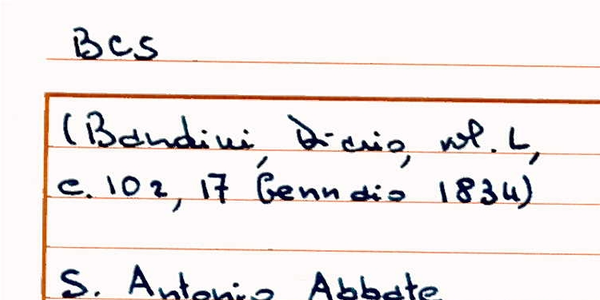 BCS
(Bandini, Diario, vol. L,
c. 102, 17 Gennaio 1834)
S. Antonio Abbate